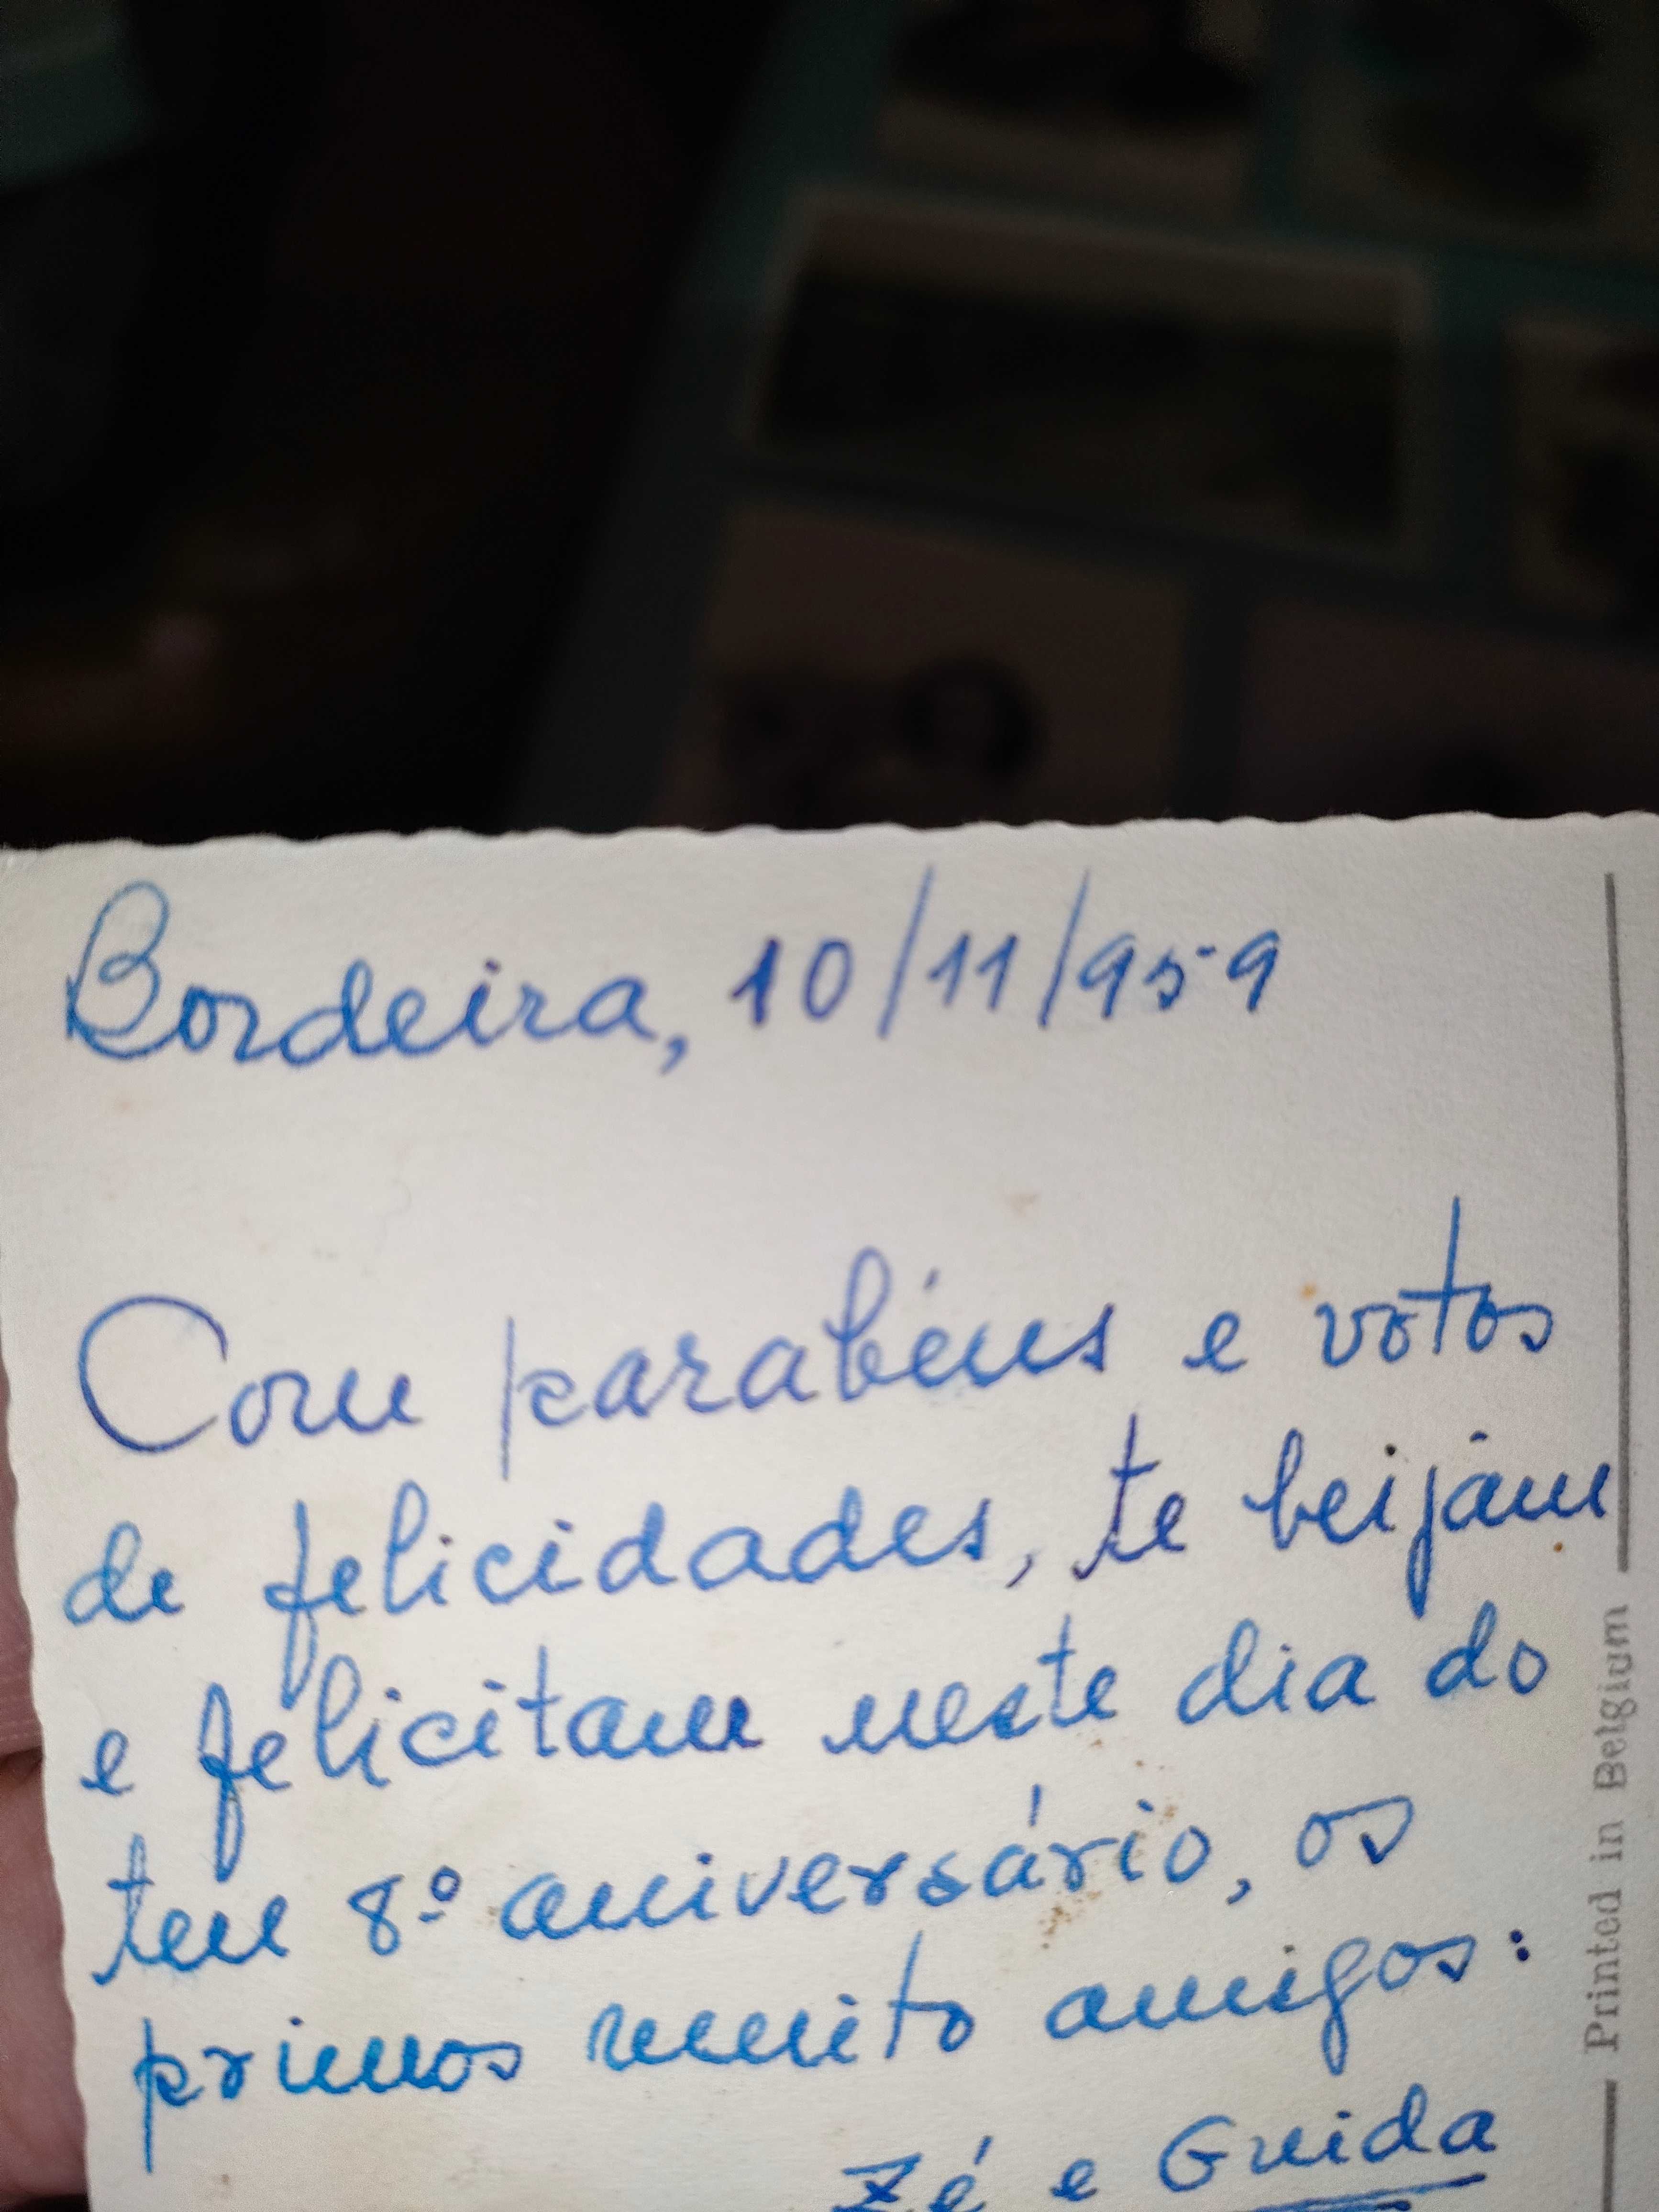 Bordeira, 10/11/959
Com parabéns e votos
de felicidades, te beijam
e felicitam neste dia do
teu 8º aniversário, os
primos muito amigos:
Zé e Guida
Printed in Belgium